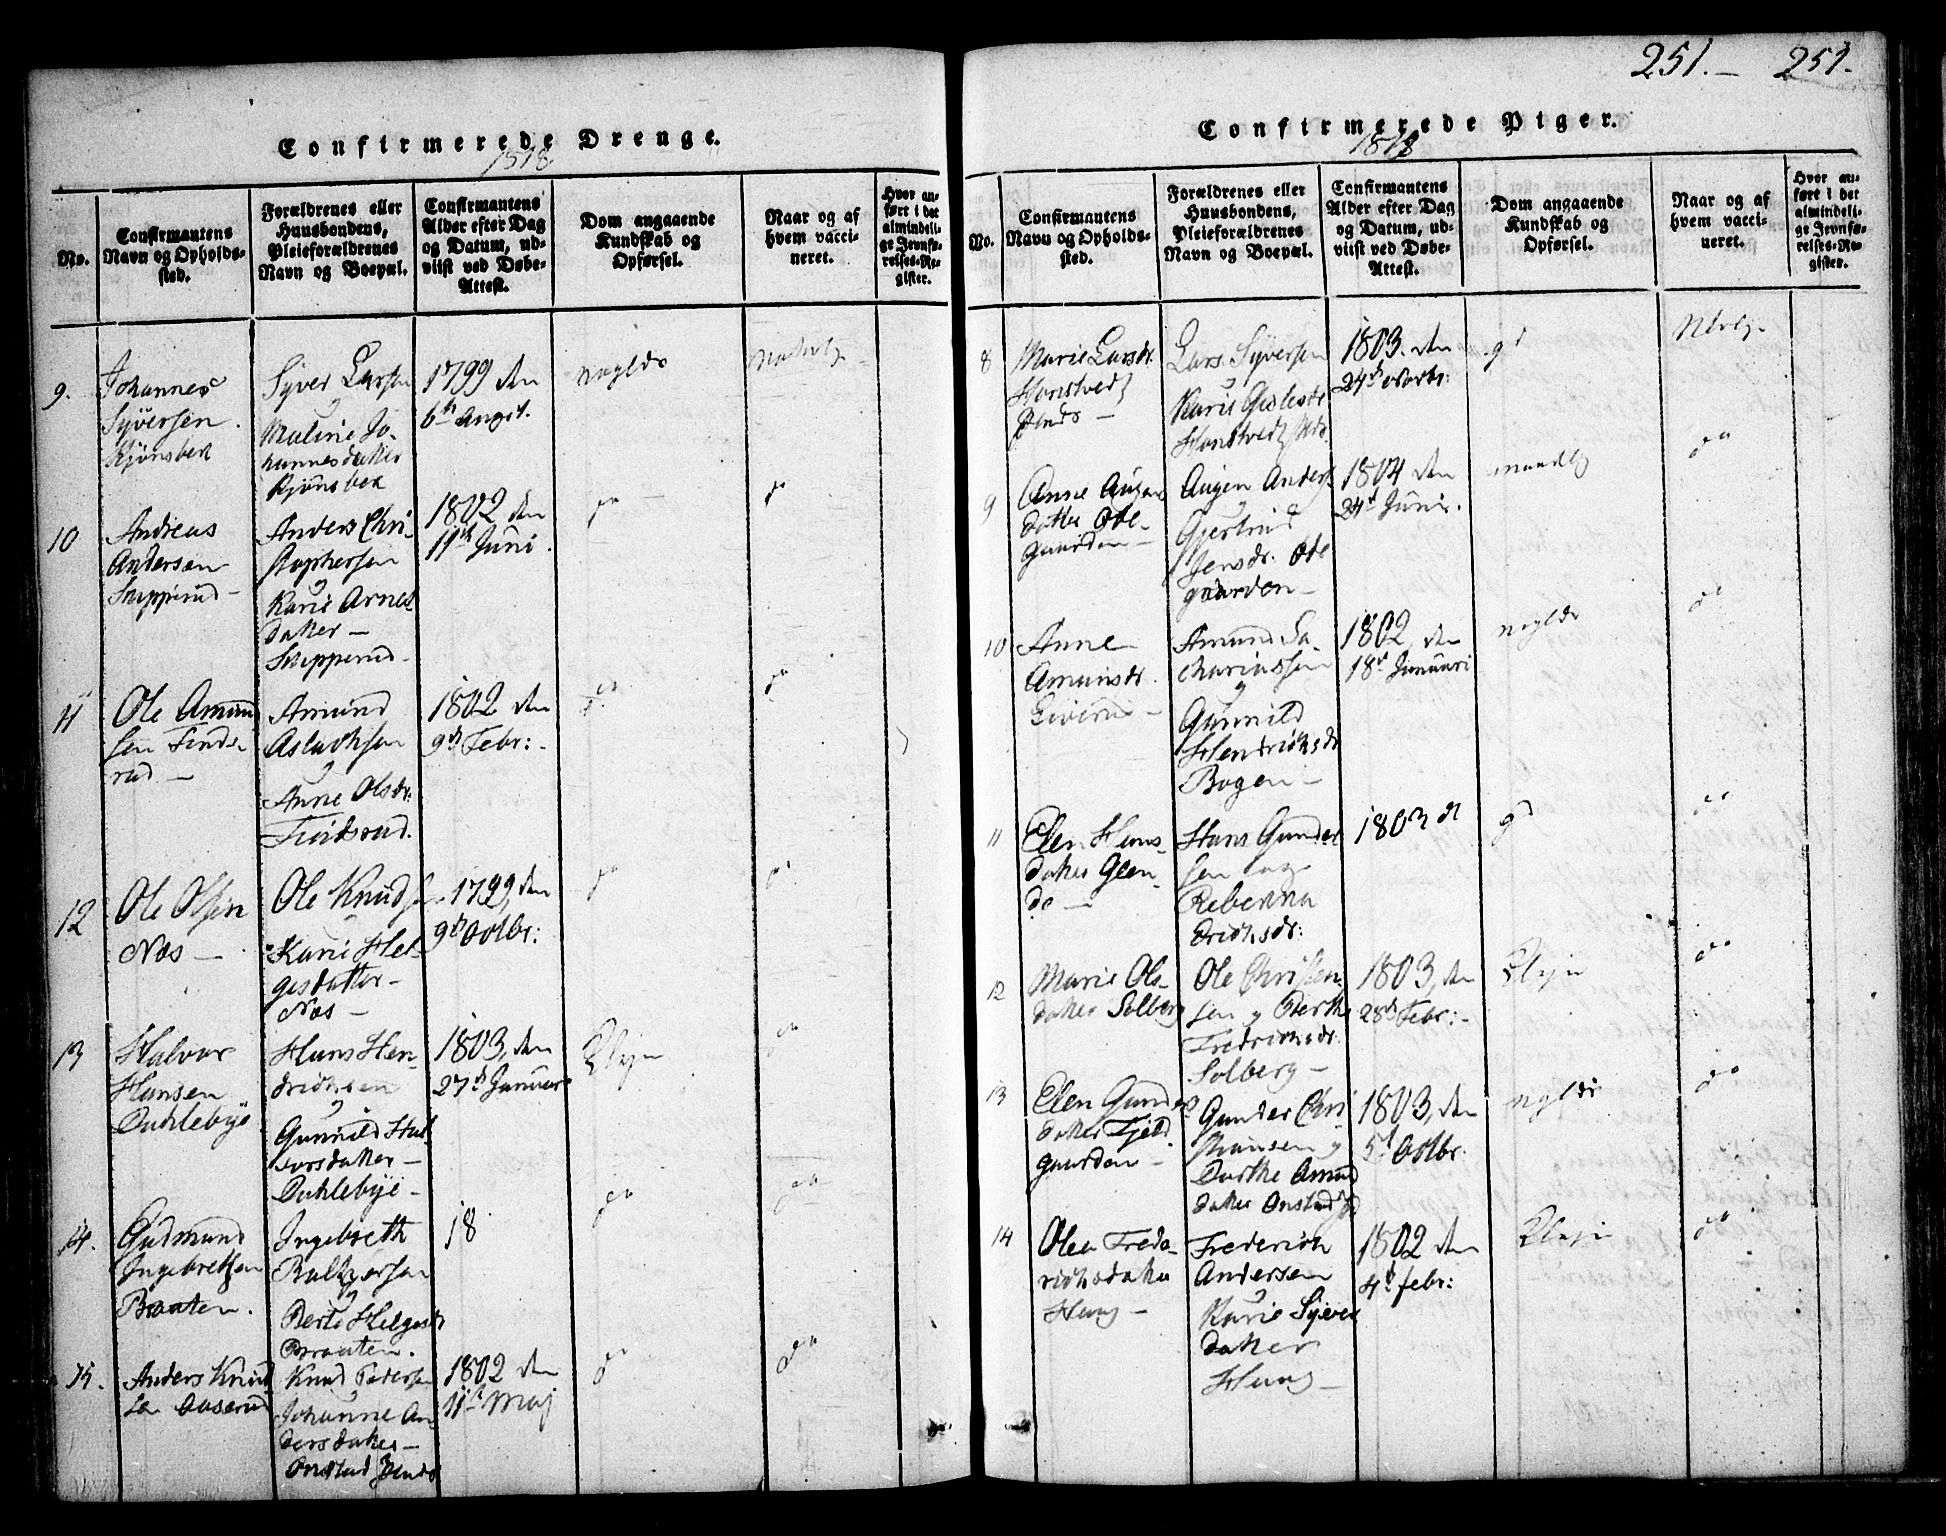 251.— 251.
Confirmerede Drenge.
1818
No.
Confirmantens Navn og Opholdssted.
Forældrenes eller Huusbondens, Pleieforældrenes Navn og Boepæl.
Confirmantens Alder efter Dag og Datum, udviist ved Døbe-Attest.
Dom angaaende Kundskab og Opførsel.
Naar og af hvem vaccineret.
Hvor anført i det almindelige Jevnførelses-Register.
9.
Johannes
Syversen
Kjønsbek
Syver Larsen
Maline Jo-
hannesdatter
Kjønsbek
1799 den
6te Augst.
10
Andreas
Andersen
Skipperud—
Anders Chri-
stophersen
Karie Arnes
datter—
Skipperud—
1802 den
11te Juni.
11
Ole Amund
sen
rud—
Amund
Aslachsen
Anne Olsdr:
1802 den
9de Febr:-
12
Ole Olsen
Næs—
Ole Knuds
Karie Hel-
gesdatter-
Næs—
1799, den
9de Octbr:
13
Halvor
Hansen
Dahlebye
Hans Hen-
drichsen
Gunnild Hal
vorsdatter—
Dahlebye-
1803, den
27de Januar
14.
Gudmund
Ingebretsen
Braaten.
Ingebreth
Baltzersen
Berte Helgesdr
Braaten.
18
15.
Anders Knud
sen Aaserud
Knud Pedersen
Johanne An-
dersdatter—
Onstad
1802 den
11te Maj
Confirmerede Piger.
1818
No.
Confirmantens Navn og Opholdssted.
Forældrenes eller Huusbondens, Pleieforældrenes Navn og Boepæl.
Confirmantens Alder efter Dag og Datum, udviist ved Døbe-Attest.
Dom angaaende Kundskab og Opførsel.
Naar og af hvem vaccineret.
Hvor anført i det almindelige Jevnførelses-Register.
8
Marie Larsdr.
Honstvedt
Lars Syversen
Karie
Honstvedt
1803. den
24de Novbr:
gd
9
Anne Augens
datter Ode-
gaarden—
Augen Anders
Gjertrud
Jensdr. Ode
gaarden—
1804 den
24de Junii.
10
Anne
Amundsdr.
Amund Sa
chariassen
Gunnild
Hendrichsdr
Bogen—
1802 den
18de Januari
11
Elen Hans-
datter Glen-
de—
Hans Gunder
sen og
Rebekka
Erichsdr:
1803 d
gd
12
Marie Ols-
datter Solberg
Ole Christen-
sen y Berthe
Fredrichsdr.
Solberg—
1803, den
28de Febr:-
13
Elen Gunders
datter Fjeld
gaarden—
Gunder Chri
stiansen y
Dorthe Amund
datter Onstad
1803, den
5te Octbr.
14
Olea Frede-
richsdatter
Haug—
Frederich
Andersen
Karie Syvers
datter
Haug—
1802 den
4de febr: